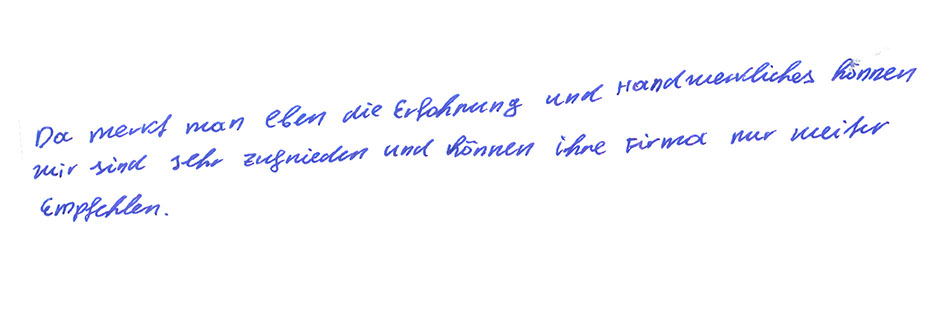 Da merkt man eben die Erfahrung und Handwerkliches können
wir sind sehr zufrieden und können ihre Firma nur weiter
Empfehlen.